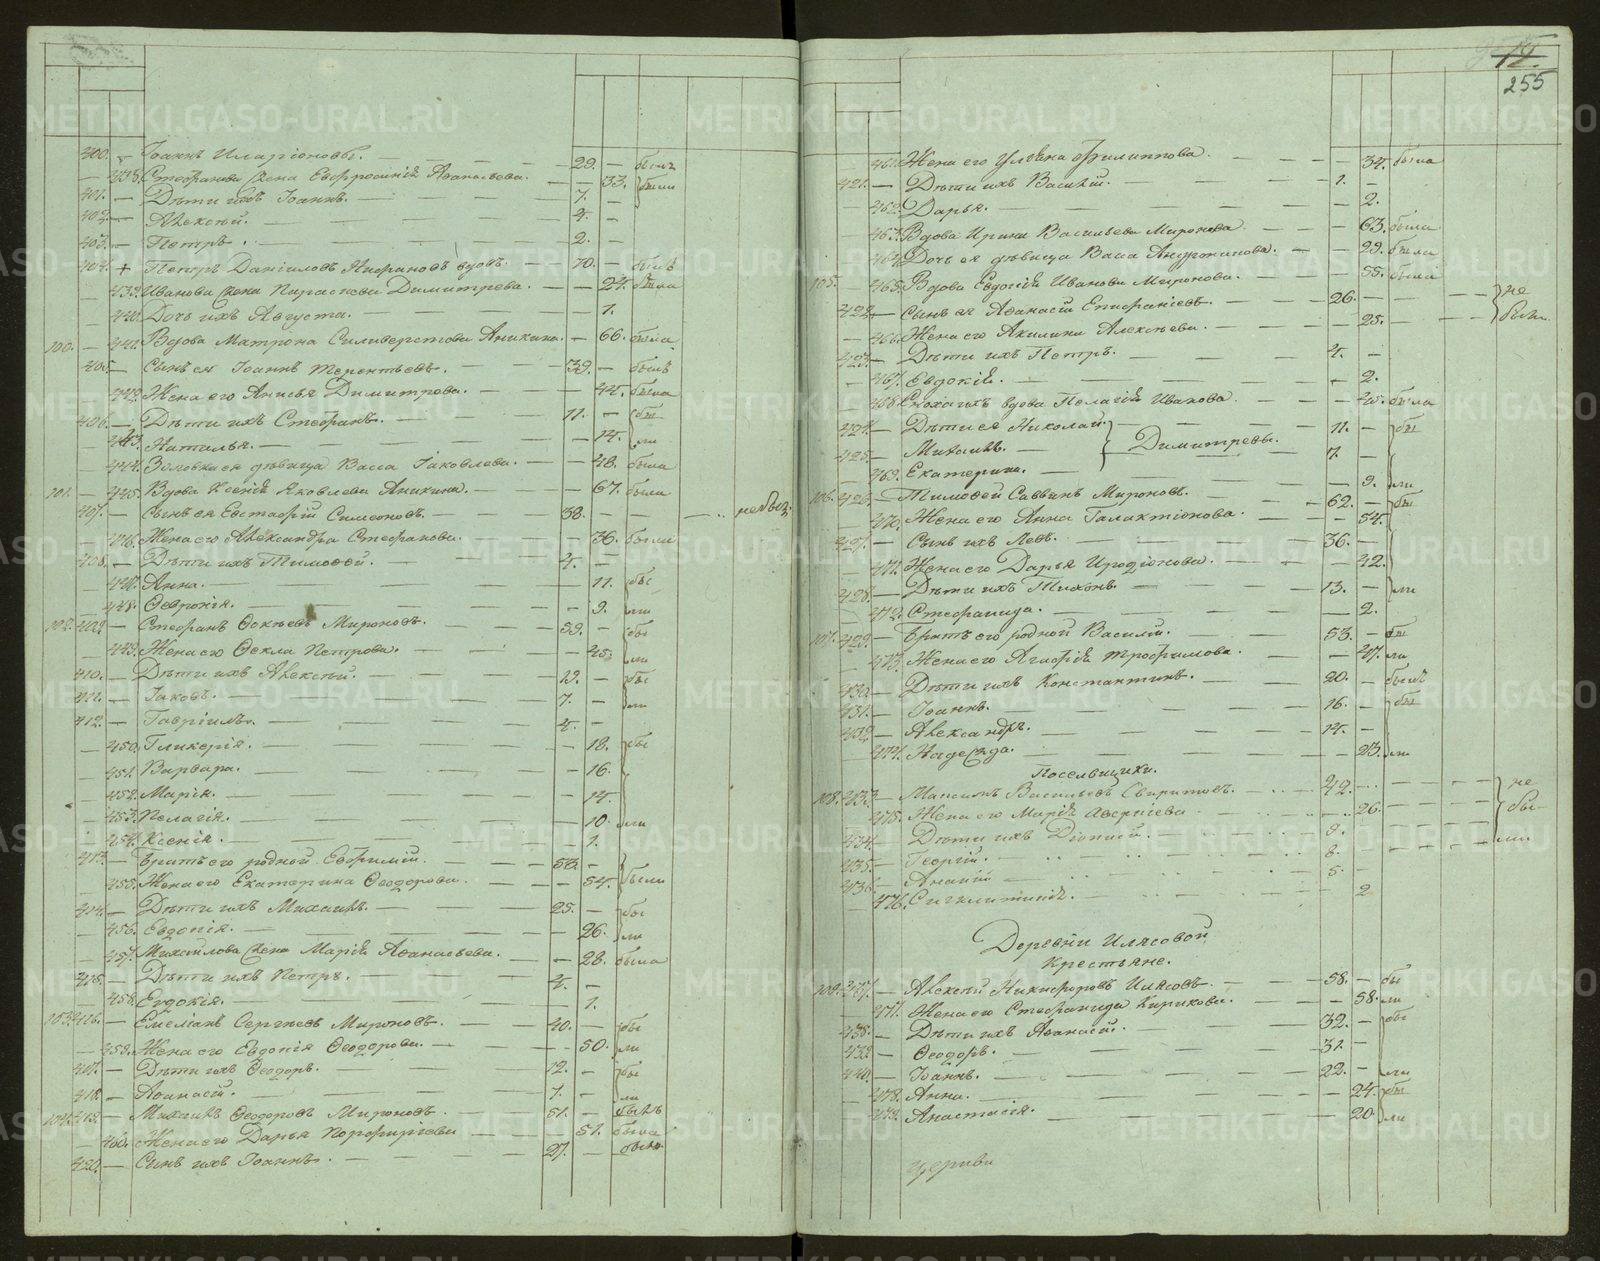 400. — Іоаннъ Иларіоновъ. — 29. — былъ
— 438. Стефанова жена Евфросинія Аѳанасьева. — 33. были
401. — Дѣти ихъ Іоаннъ. — 7. —
402. — Алексѣй. — 4. —
403. — Петръ. — 2. —
404. + Петръ Даніиловъ вдовъ. — 70. — былъ
— 439. Иванова жена Параскева Димитріева. — 24. была
— 440. Дочь ихъ Августа. — 1.
100. — 441. Вдова Матрона Силиверстова Аникина. — 66. была
405. — Сынъ ея Іоаннъ Терентьевъ. — 39. — былъ
— 442. Жена его Анисья Димитріева. — 44. была
406. — Дѣти ихъ Стефанъ. — 11. — бы
— 443. Наталья. — 14. ли
— 444. Золовка ея дѣвица Васса Іаковлева. — 48. была
101. — 445. Вдова Ксенія Яковлева Аникина. — 67. была
407. — Сынъ ея Евстафій Симеоновъ. — 38. — — не был.
— 446. Жена его Александра Стефанова. — 36. была
408. — Дѣти ихъ Тимоѳей. — 4. —
— 447. Анна. — 11. бы
— 448. Ѳевронія. — 9. ли
102. 409. — Стефанъ Ѳокѣевъ Мироновъ. — 59. — бы
— 449. Жена его Ѳекла Петрова. — 45. ли
410. — Дѣти ихъ Алексѣй. — 19. — бы
411. — Іаковъ. — 7. — ли
412. — Гавріилъ. — 4. —
— 450. Гликерія. — 18. бы
— 451. Варвара. — 16.
— 452. Марія. — 14.
— 453. Пелагія. — 10. ли
— 454. Ксенія. — 1.
413. — Братъ его родной Евфимій. — 53. —
— 455. Жена его Екатерина Ѳеодорова. — 54. были
414. — Дѣти ихъ Михаилъ. — 25. — бы
— 456. Евдокія. — 26. ли
— 457. Михайлова жена Марія Аѳанасьева. — 28. была
415. — Дѣти ихъ Петръ. — 4. —
— 458. Евдокія. — 1.
103. 416. — Емеліанъ Сергѣевъ Мироновъ. — 40. — бы
— 459. Жена его Евдокія Ѳеодорова. — 50. ли
417. — Дѣти ихъ Ѳеодоръ. — 12. — бы
418. — Аѳанасій. — 7. — ли
104. 419. — Михаилъ Ѳеодоровъ Мироновъ. — 51. — былъ
— 460. Жена его Дарья Порфиріева — 51. была
420. — Сынъ ихъ Іоаннъ. — 27. — былъ
255
— 461. Жена его Ульяна Филиппова. — 34. была
421. — Дѣти ихъ Василій. — 1. —
— 462. Дарья. — 2.
— 463. Вдова Ирина Васильева Миронова — 63. была
— 464. Дочь ея дѣвица Васса Андроникова. — 29. была
105. — 465. Вдова Евдокія Иванова Миронова. — 55. была
422. — Сынъ ея Аѳанасій Епифаніевъ. — 26. — — не
— 466. Жена его Акилина Алексѣева. — 25. — — были
423. — Дѣти ихъ Петръ. — 4. —
— 467. Евдокія. — 2.
— 468. Сноха ихъ вдова Пелагія Иванова. — 40. была
424. — Дѣти ея Николай — 11. — бы
425. — Михаилъ. Димитріевы. — 7. —
— 469. Екатерина. — 9. ли
106. 426. — Тимоѳей Саввинъ Мироновъ. — 62. — бы
— 470. Жена его Анна Галактіонова. — 54.
427. — Сынъ ихъ Левъ. — 36. —
— 471. Жена его Дарья Иродіонова. — 42.
428. — Дѣти ихъ Тихонъ. — 13. — ли
— 472. Стефанида. — 2.
107. 429. — Братъ его родной Василій. — 53. — бы
— 473. Жена его Агафія Трофимова. — 47. ли
430. — Дѣти ихъ Константинъ. — 20. — былъ
431. — Іоаннъ. — 16. — бы
432. — Александръ. — 14. —
— 474. Надежда. — 23. ли
Посельщики.
108. 433. — Максимъ Васильевъ — 42. — не
— 475. Жена его Марія — 26. — бы-
434. — Дѣти ихъ — 9. — ли
435. — Георгій. — 6. —
436. — Ананій — 5. —
— 476. — 2
Деревни Илясовой
Крестьяне.
109. 437. — Алексѣй Никифоровъ Илясовъ — 58. — бы
— 477. Жена его Стефанида Кирикова. — 58. ли
438. — Дѣти ихъ Аѳанасій. — 32. — бы
439. — Ѳеодоръ. — 31. —
440. — Іоаннъ. — 22. — ли
— 478. Анна. — 24. бы
— 479. Анастасія. — 20. ли
Церкви